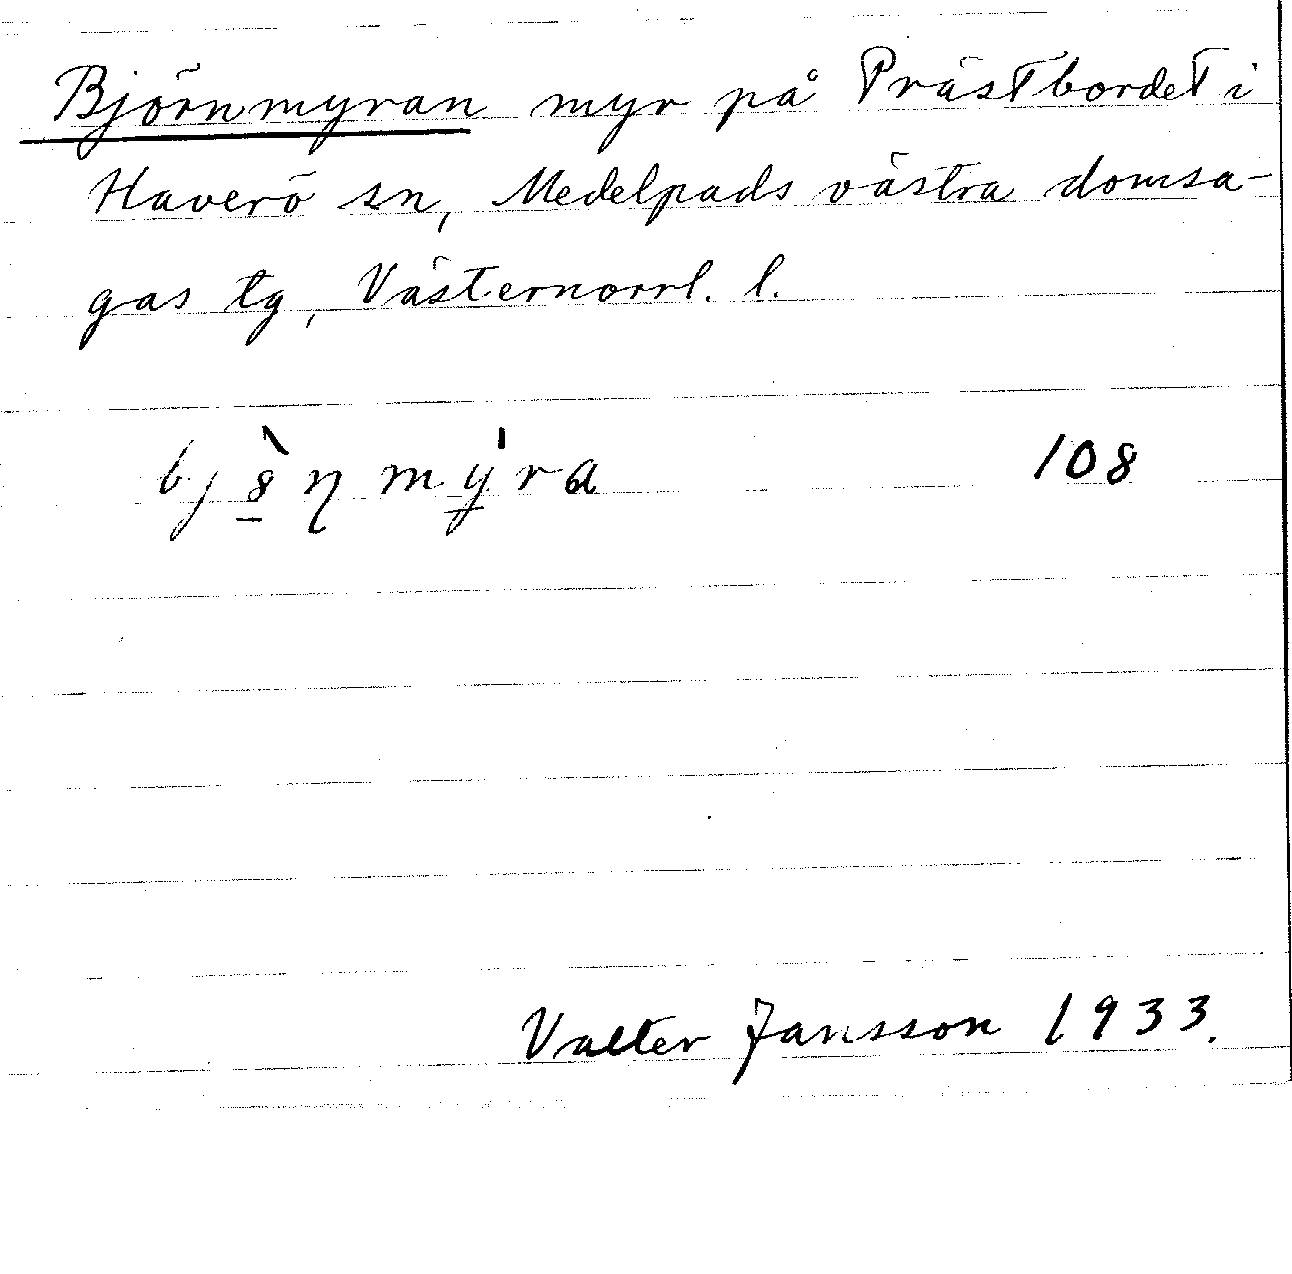 Björnmyran myr på Prästbordet i
Haverö sn, Medelpads västra domsa-
gas tg, Västernorrl. l.
108
Valter Jansson 1933.